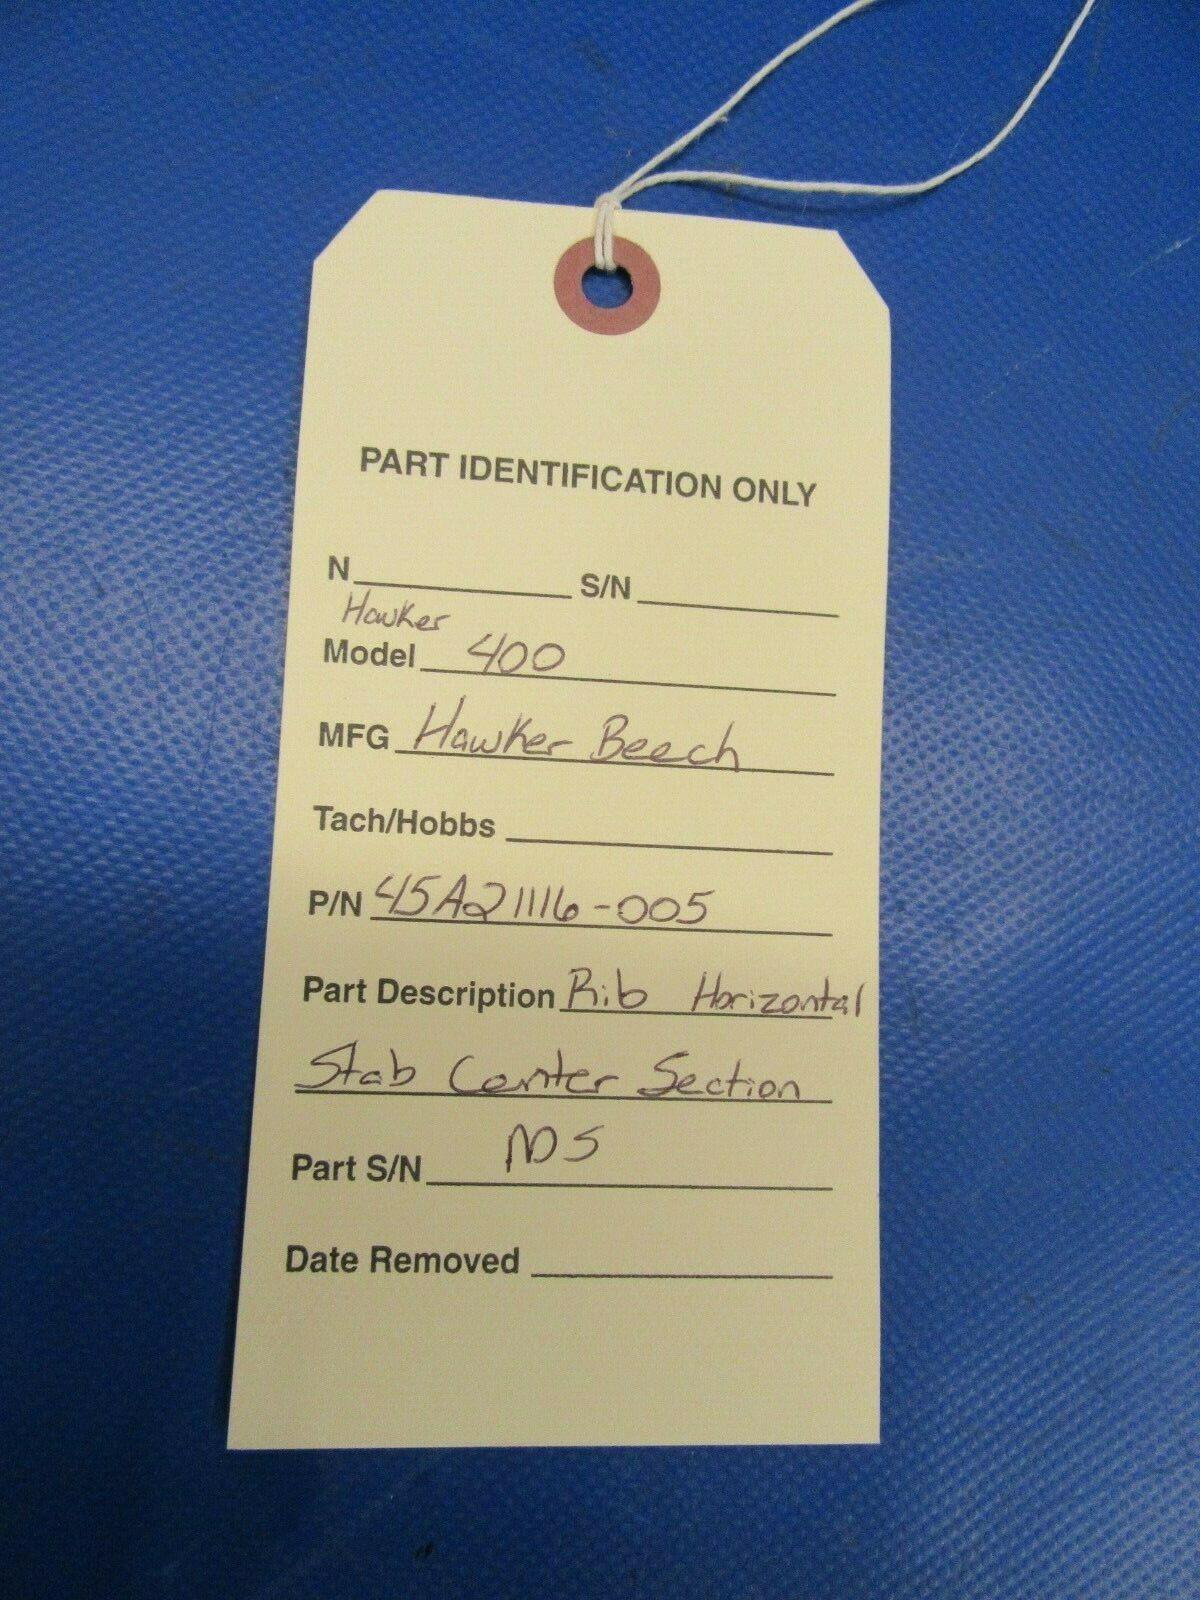 PART IDENTIFICATION ONLY
N S/N
Hawker
Model 400
MFG Hawker Beech
Tach/Hobbs
P/N 45A21116-005
Part Description Rib Horizontal
Stab Center Section
Part S/N NDS
Date Removed